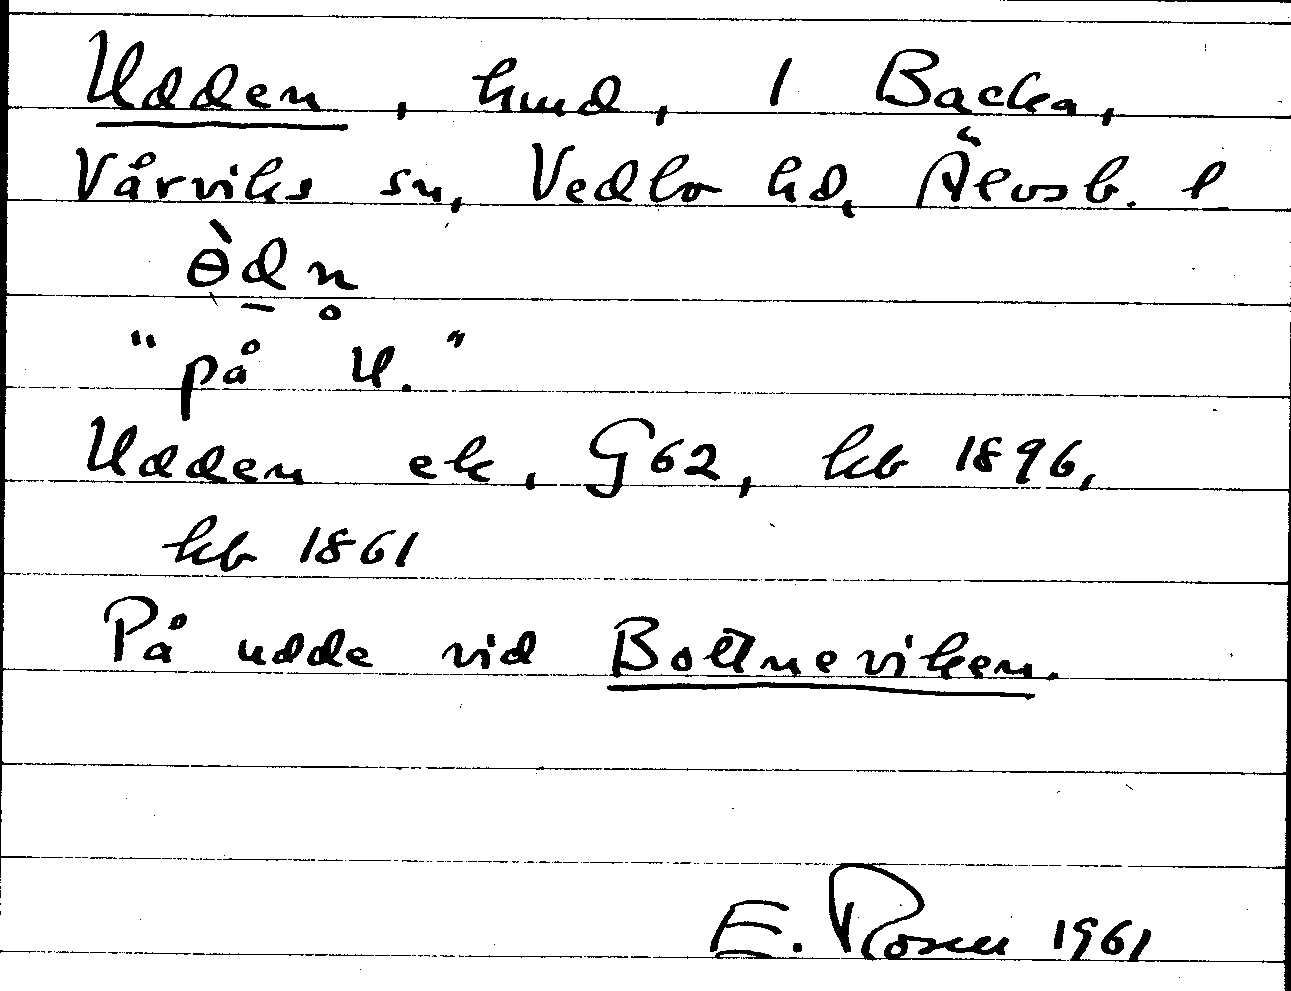 Udden, hmd, 1 Backa,
Vårviks sn, Vedbo hd, Älvsb. l
ɵ̀d̠n̥
"på U."
Udden ek, G62, kb 1896,
hb 1861
På udde vid Bottneviken.
E. Rosen 1961